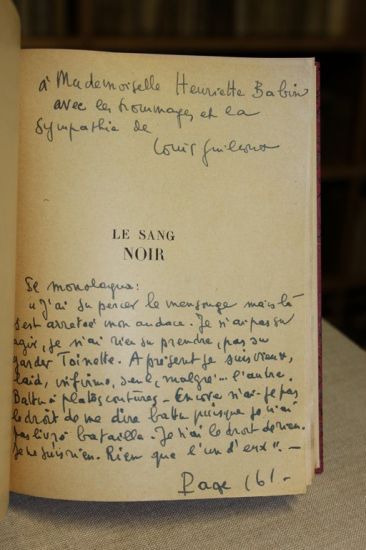 à Mademoiselle Henriette Babin
avec les hommages et la
sympathie de
Louis Guilloux
LE SANG
NOIR
Se monologua:
"J'ai su percer le mensonge mais là
s'est arrêtée mon audace. Je n'ai pas su
agir, je n'ai rien su prendre, pas su
garder Toinette. A présent je suis vieux,
laid, infirme, seul, malgré... l'autre.
Battu à plates coutures - Encore n'ai-je pas
le droit de me dire battu puisque je n'ai
pas livré bataille. Je n'ai le droit de rien.
Je ne suis rien. Rien que l'un d'eux". -
Page 161. -